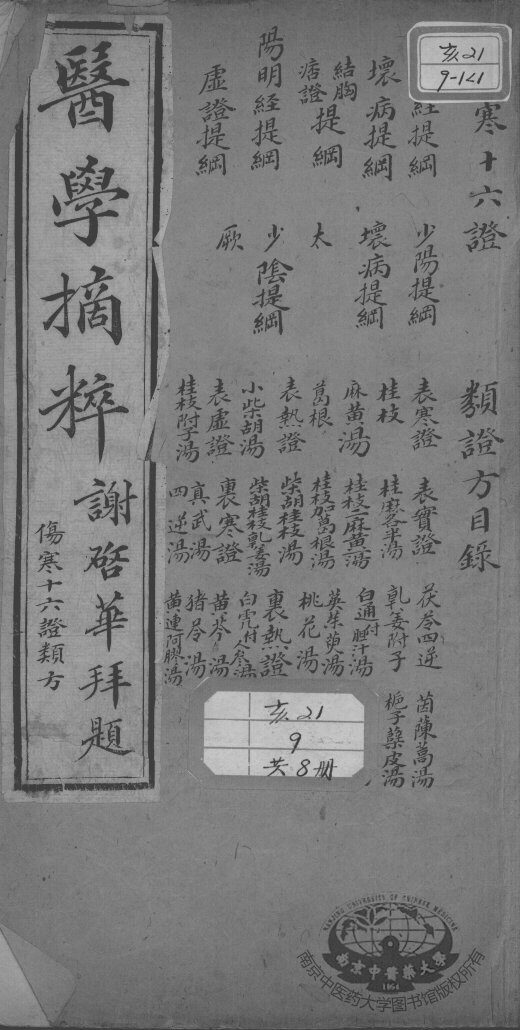 亥21
9-1<1
寒十六證
類證方目錄
經提綱
少陽提綱
表寒證
表實證
茯苓四逆
茵陳蒿湯
壞病提綱
壞病提綱
桂枝
桂麻各半湯
乾姜附子
梔子蘗皮湯
結胸
痞證
提綱
太
麻黃湯
桂枝二麻黃一湯
白通附膽汁湯
葛根
桂枝加葛根湯
吳茱萸湯
桃花湯
陽明經提綱
少陰提綱
表熱證
柴胡桂枝湯
裏熱證
小柴胡湯
柴胡桂枝乾姜湯
白虎付人參湯
虛證提綱
厥
表虛證
裏寒證
黃芩湯
真武湯
豬苓湯
桂枝附子湯
四逆湯
黃連阿膠湯
醫學摘粹
謝啓華拜題
傷寒十六證類方
亥21
9
共8册
NANJING UNIVERSITY OF CHINESE MEDICINE
南京中醫藥大學
1954
南京中医药大学图书馆版权所有